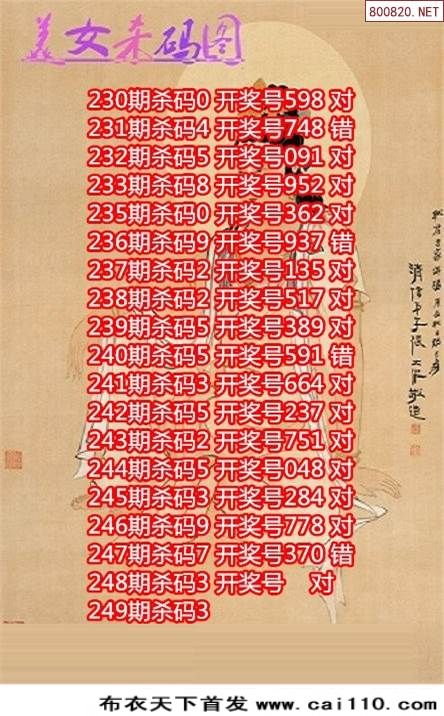 800820.NET
美女杀码图
230期杀码0 开奖号598 对
231期杀码4 开奖号748 错
232期杀码5 开奖号091 对
233期杀码8 开奖号952 对
235期杀码0 开奖号362 对
236期杀码9 开奖号937 错
237期杀码2 开奖号135 对
238期杀码2 开奖号517 对
239期杀码5 开奖号389 对
240期杀码5 开奖号591 错
241期杀码3 开奖号664 对
242期杀码5 开奖号237 对
243期杀码2 开奖号751 对
244期杀码5 开奖号048 对
245期杀码3 开奖号284 对
246期杀码9 开奖号778 对
247期杀码7 开奖号370 错
248期杀码3 开奖号 对
249期杀码3
布衣天下首发 www.cai110.com